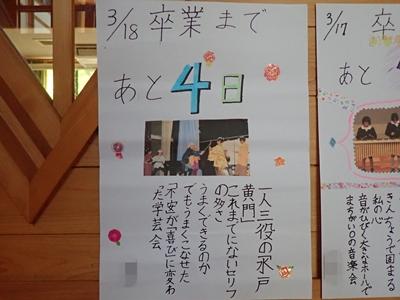 3/18 卒業まで
あと4日
一人三役の「水戸
黄門」
これまでにないセリフ
の多さ
うまくできるのか
でもうまくこなせた
「不安」が「喜び」に変わっ
た学芸会
3/17 卒
あと
きんちょうで固まる
私の心
音がひびく大きなホールで
まちがい0の音楽会